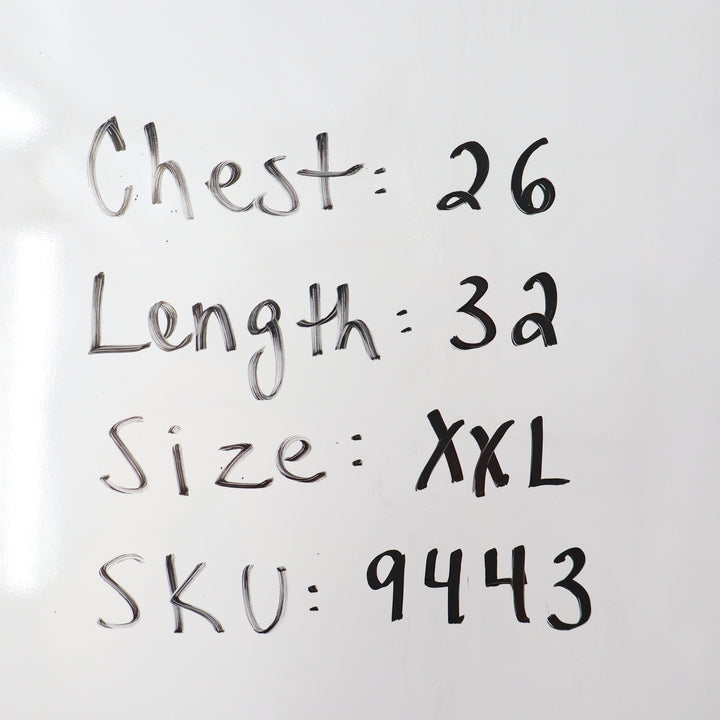 Chest: 26
Length: 32
Size: XXL
SKU: 9443